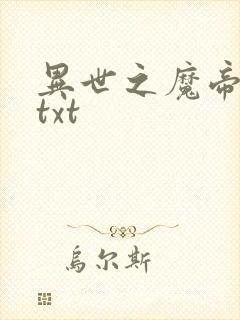 異世之魔帝
txt
烏尔斯